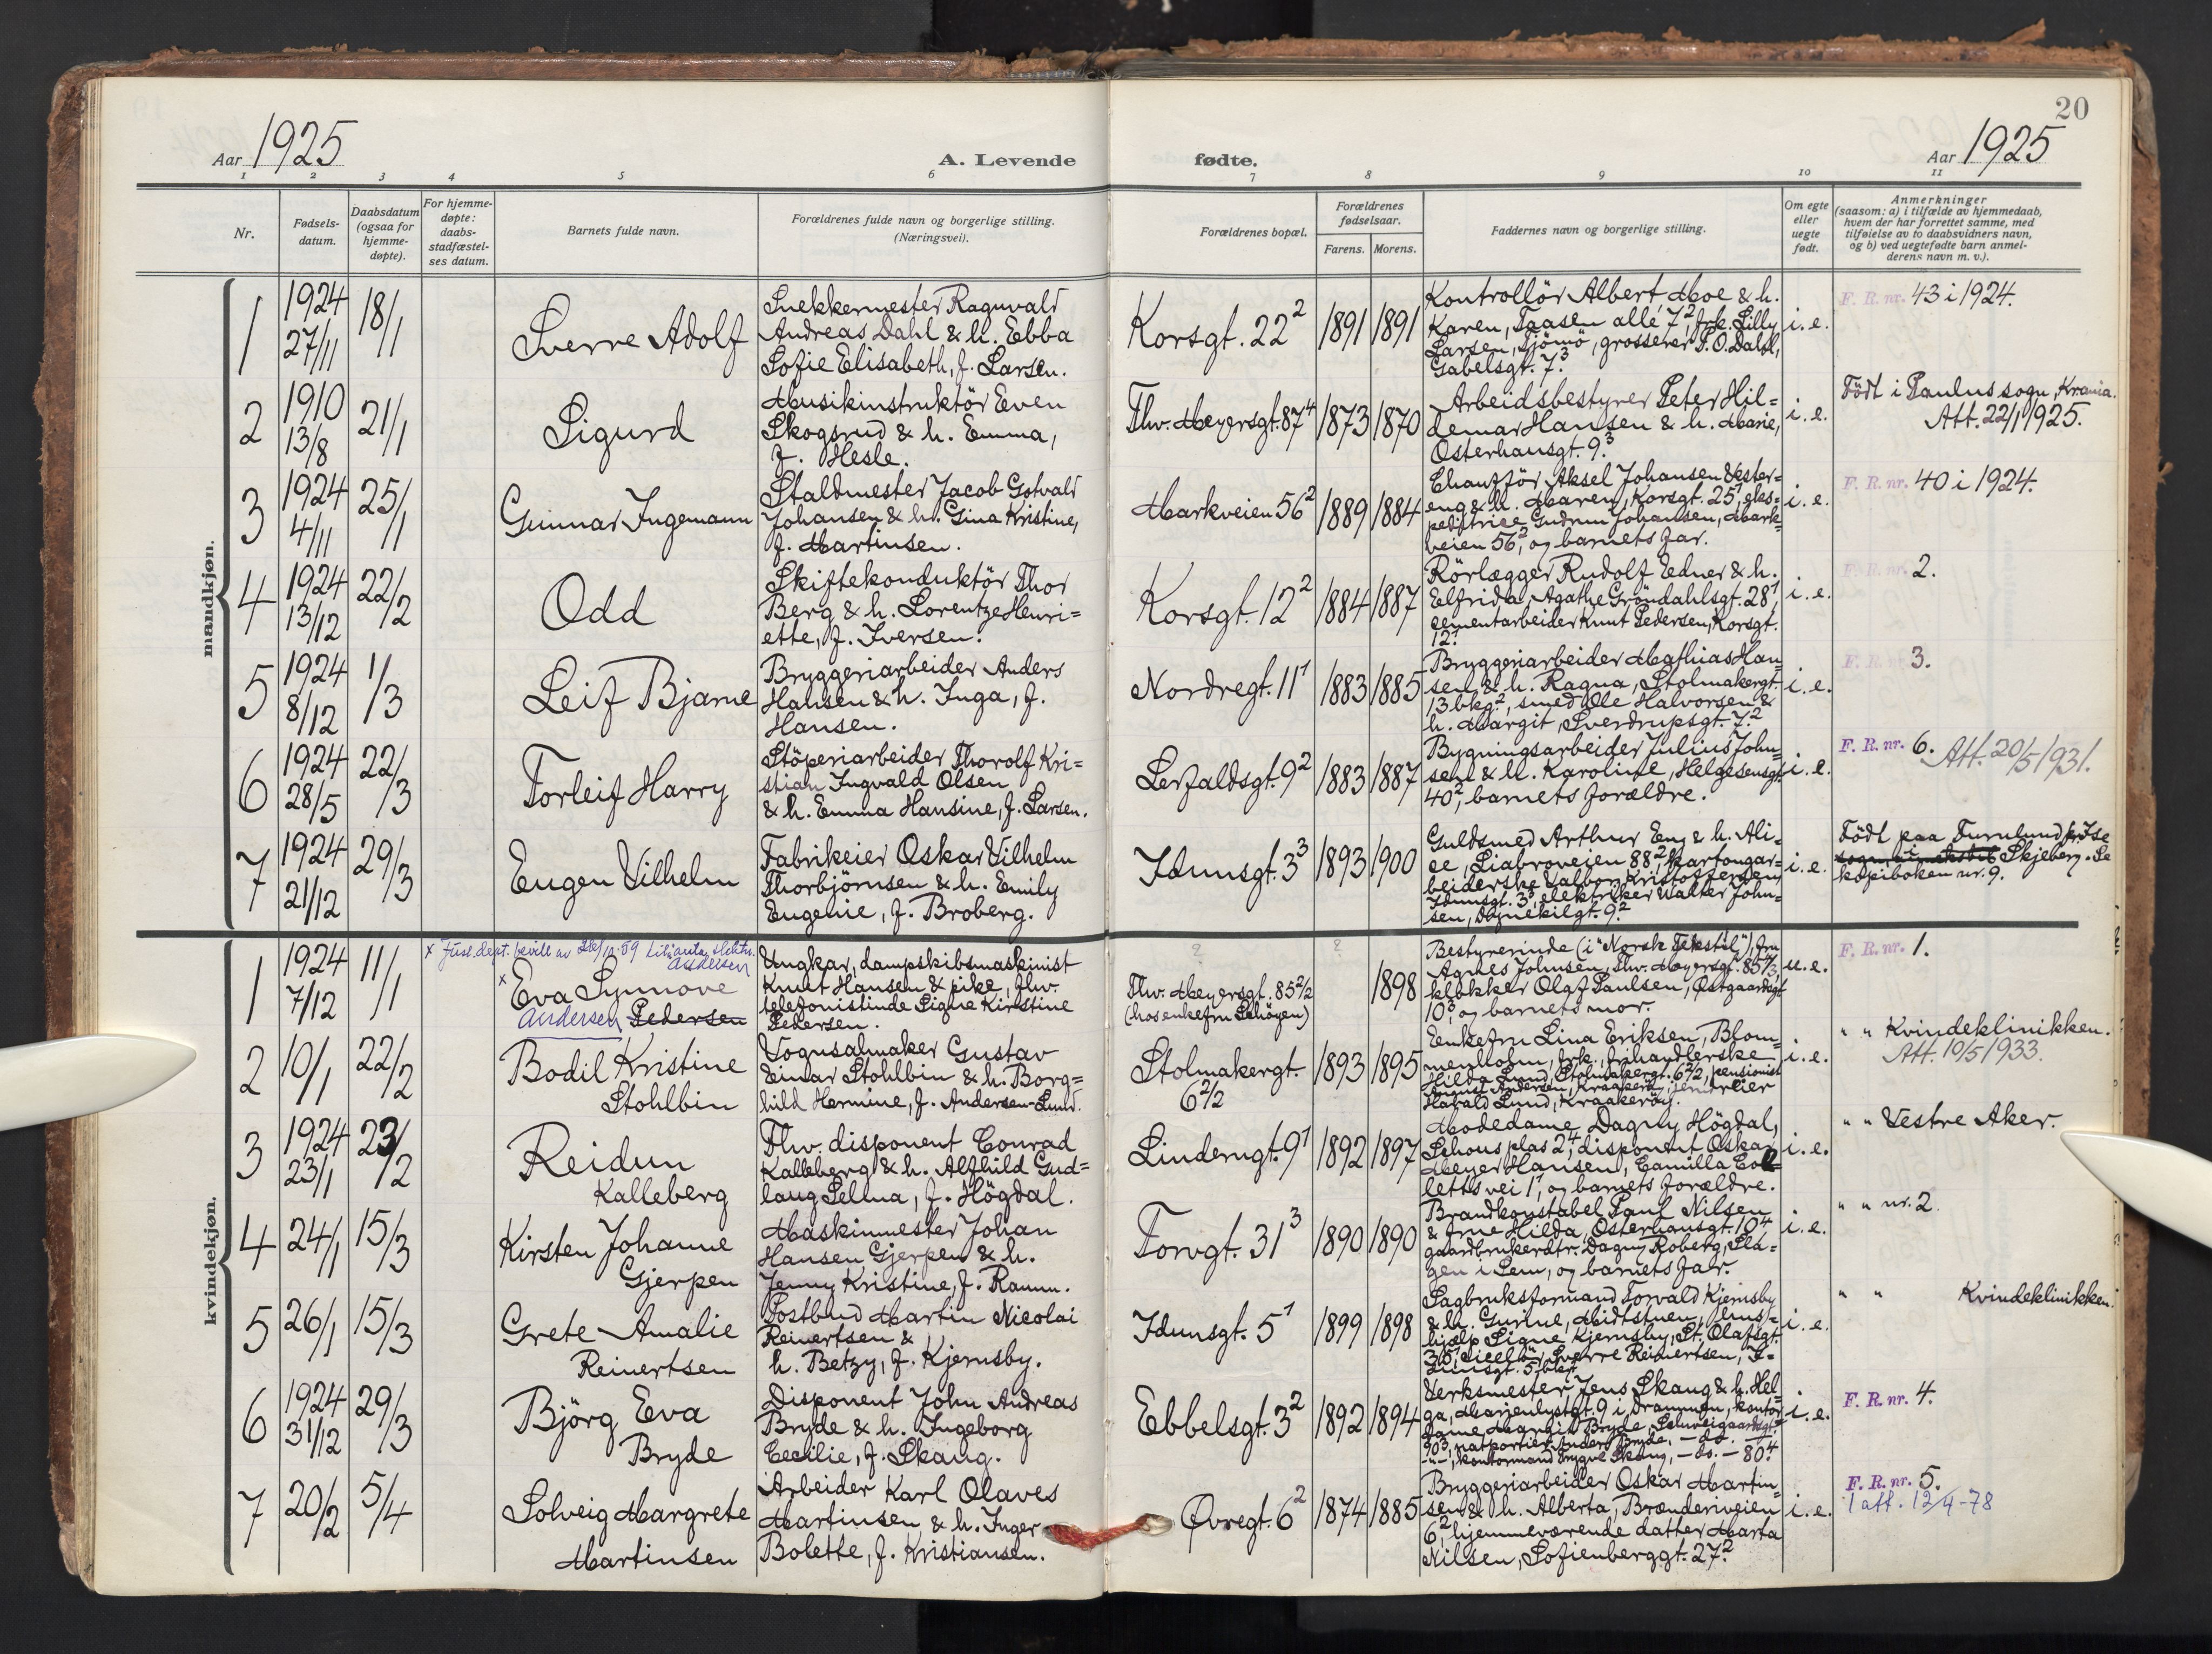 20
Aar 1925
A. Levende
fødte.
Aar 1925
1 2 3 4 5 6 7 8 9 10 11
Nr.
Fødsels-
datum.
Daabsdatum
(ogsaa for
hjemme-
døpte).
For hjemme-
døpte:
daabs-
stadfæstel-
ses datum.
Barnets fulde navn.
Forældrenes fulde navn og borgerlige stilling.
(Næringsvei).
Forældrenes bopæl.
Forældrenes
fødselsaar.
Farens. Morens.
Faddernes navn og borgerlige stilling.
Om egte
eller
uegte
født.
Anmerkninger
(saasom: a) i tilfælde av hjemmedaab,
hvem der har forrettet samme, med
tilføielse av to daabsvidners navn,
og b) ved uegtefødte barn anmel-
derens navn m. v.).
mandkjøn.
1
1924
27/11
18/1
Sverre Adolf
Snekkermester Ragnvald
Andreas Dahl & h. Ebba
Sofie Elisabeth, f. Larsen.
Korsgt. 22²
1891
1891
Kontrollör Albert Moe & h.
Karen, Taasen allé 7², frk. Lilly
Larsen, Tjömö, grosserer P. O. Dahl,
Gabelsgt. 7³.
i. e.
F. R. nr. 43 i 1924.
2
1910
13/8
21/1
Sigurd
Musikinstruktör Even
Skogsrud & h. Emma,
f. Hesle.
Thv. Meyersgt. 87⁴
1873
1870
Arbeidsbestyrer Peter Hil=
demar Hansen & h. Marie,
Osterhausgt. 9³.
i. e.
Födt i Paulus sogn, Krania.
Att. 22/1 1925.
3
1924
4/11
25/1
Gunnar Ingemann
Staldmester Jacob Gotvald
Johansen & h. Gina Kristine,
f. Martinsen.
Markveien 56²
1889
1884
Chaufför Aksel Johansen Vester=
eng & h. Maren, Korsgt. 25¹, eks=
peditrice Gudrun Johansen, Mark=
veien 56², og barnets far.
i. e.
F. R. nr. 40 i 1924.
4
1924
13/12
22/2
Odd
Skiftekonduktör Thor
Berg & h. Lorentze Henri=
ette, f. Iversen.
Korsgt. 12²
1884
1887
Rörlægger Rudolf Edner & h.
Elfrida, Agathe Gröndahlsgt. 28¹,
cementarbeider Knut Pedersen, Korsgt.
12².
i. e.
F. R. nr. 2.
5
1924
8/12
1/3
Leif Bjarne
Bryggeriarbeider Anders
Hansen & h. Inga, f.
Hansen.
Nordregt. 11¹
1883
1885
Bryggeriarbeider Mathias Han=
sen & h. Ragna, Stolmakergt.
13 bkg², smed Ole Halvorsen &
h. Margit, Sverdrupsgt. 7².
i. e.
F. R. nr. 3.
6
1924
28/5
22/3
Torleif Harry
Stöperiarbeider Thorolf Kri=
stian Ingvald Olsen
& h. Emma Hansine, f. Larsen.
Lerfaldsgt. 9²
1883
1887
Bygningsarbeider Julius John=
sen & h. Karoline, Helgesensgt.
40², barnets forældre.
i. e.
F. R. nr. 6. Att. 20/5 1931.
7
1924
21/12
29/3
Eugen Vilhelm
Fabrikeier Oskar Vilhelm
Thorbjörnsen & h. Emily
Eugenie, f. Broberg.
Idunsgt. 3³
1893
1900
Guldsmed Arthur Eng & h. Ali=
ce, Liabroveien 88², kartongar=
beiderske Valborg Kristoffersen,
Idunsgt. 3³, elektriker Walter John=
sen, 9².
i. e.
Födt paa Furulund pr. Ise
i Skjeberg. Se
kopiboken nr. 9.
kvindekjøn.
1
1924
7/12
11/1
x Just. dept. bevill av 28/10-59
Andersen
x Eva Synnöve
Andersen Pedersen
Ungkar, dampskibsmaskinist
Knut Hansen & pike, fhv.
telefonistinde Signe Kirstine
Pedersen.
?
Thv. Meyersgt. 85²/2
(hos enkefru Schöyen)
?
1898
Bestyrerinde (i "Norsk Tekstil"), fru
Agnes Johnsen, Thv. Meyersgt. 85⁴/3,
klokker Olaf Paulsen, Östgaardsgt.
10³, og barnets mor.
u. e.
F. R. nr. 1.
2
10/1
22/2
Bodil Kristine
Stohlbin
Vognsalmaker Gustav
Einar Stohlbin & h. Borg=
hild Hermine, f. Andersen-Lund.
Stolmakergt.
6²/2
1893
1895
Enkefru Lina Eriksen, Blom=
menholm, frk. frihandlerske
Hilda Lund, Stolmakergt. 6²/2, pensionist
August Andersen, Kraakeröy,
Harald Lund, Kraakeröy.
i. e.
" " Kvindeklinikken.
Att. 10/5 1933.
3
1924
23/1
23/2
Reidun
Kalleberg
Fhv. disponent Conrad
Kalleberg & h. Alfhild Gud=
laug Selma, f. Högdal.
Linderngt. 9¹
1892
1897
Modedame Dagny Högdal,
Schous plas 2⁴, disponent Oskar
Meyer Hansen, Camilla Col=
letts vei 1¹, og barnets forældre.
i. e.
" " Vestre Aker.
4
24/1
15/3
Kirsten Johanne
Gjerpen
Maskinmester Johan
Hansen Gjerpen & h.
Jenny Kristine, f. Ramm.
Torvgt. 31³
1890
1890
Brandkonstabel Paul Nilsen
& frue Hilda, Osterhausgt. 10⁴,
gaardbrukerdtr. Dagny Roberg, Sla=
gen i Sem, og barnets far.
i. e.
" " nr. 2.
5
26/1
15/3
Grete Amalie
Reinertsen
Postbud Martin Nicolai
Reinertsen &
h. Betzy, f. Kjernsby.
Idunsgt. 5¹
1899
1898
Sagbruksformand Torvald Kjernsby
& h. Gunne, Midtstuen, hus=
hjælp Signe Kjernsby, St. Olafsgt.
35, Sverre Reinertsen, I=
dunsgt. 5
i. e.
" " Kvindeklinikken.
6
1924
31/12
29/3
Björg Eva
Bryde
Disponent John Andreas
Bryde & h. Ingeborg
Cecilie, f. Skaug.
Ebbelsgt. 3²
1892
1894
Verksmester Jens Skaug & h. Hel=
ga, Marienlystgt. 9 i Drammen, kontor=
dame Margit Bryde, Schweigaardsgt.
90³, natportier Anders Bryde, - do. -
- " -, kontormand Trygve Skaug, - do. - 80⁴.
i. e.
F. R. nr. 4.
7
20/2
5/4
Solveig Margrete
Martinsen
Arbeider Karl Olaves
Martinsen & h. Inger
Bolette, f. Kristiansen.
Øvregt. 6²
1874
1885
Bryggeriarbeider Oskar Martin=
sen & h. Alberta, Brænderiveien
6², hjemmeværende datter Marta
Nilsen, Sofienberggt. 27².
i. e.
F. R. nr. 5.
1 att. 12/4-78